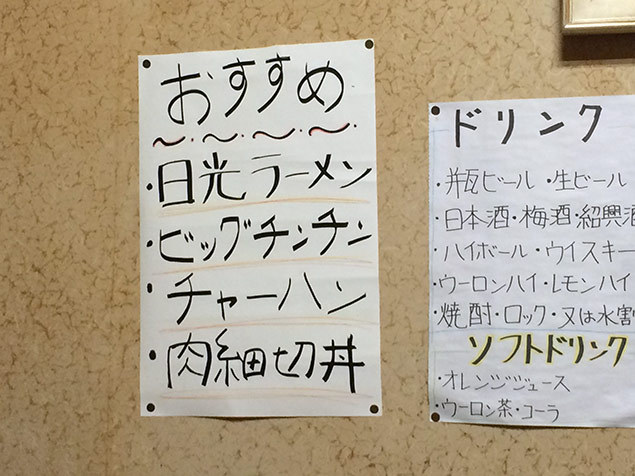 おすすめ
・日光ラーメン
・ビッグチンチン
・チャーハン
・肉細切丼
ドリンク
・瓶ビール ・生ビール
・日本酒・梅酒・紹興酒
・ハイボール・ウイスキー
・ウーロンハイ・レモンハイ
・焼酎・ロック・又は水割
ソフトドリンク
・オレンジジュース
・ウーロン茶・コーラ